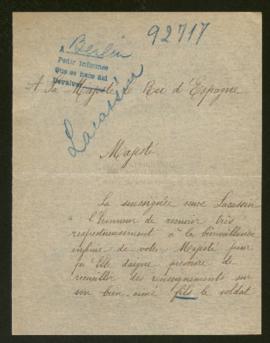 92717
A Berlin
Pedir informe
Que se haga así
Devolver
A Sa Majesté le Roi d'Espagne
Lacassin
Majesté
La soussignée veuve Lacassin
a l'honneur de venir très
respectueusement à la bienveillance
infinie de votre Majesté pour
qu'Elle daigne prendre
recueillir des renseignements sur
son bien-aimé fils le soldat